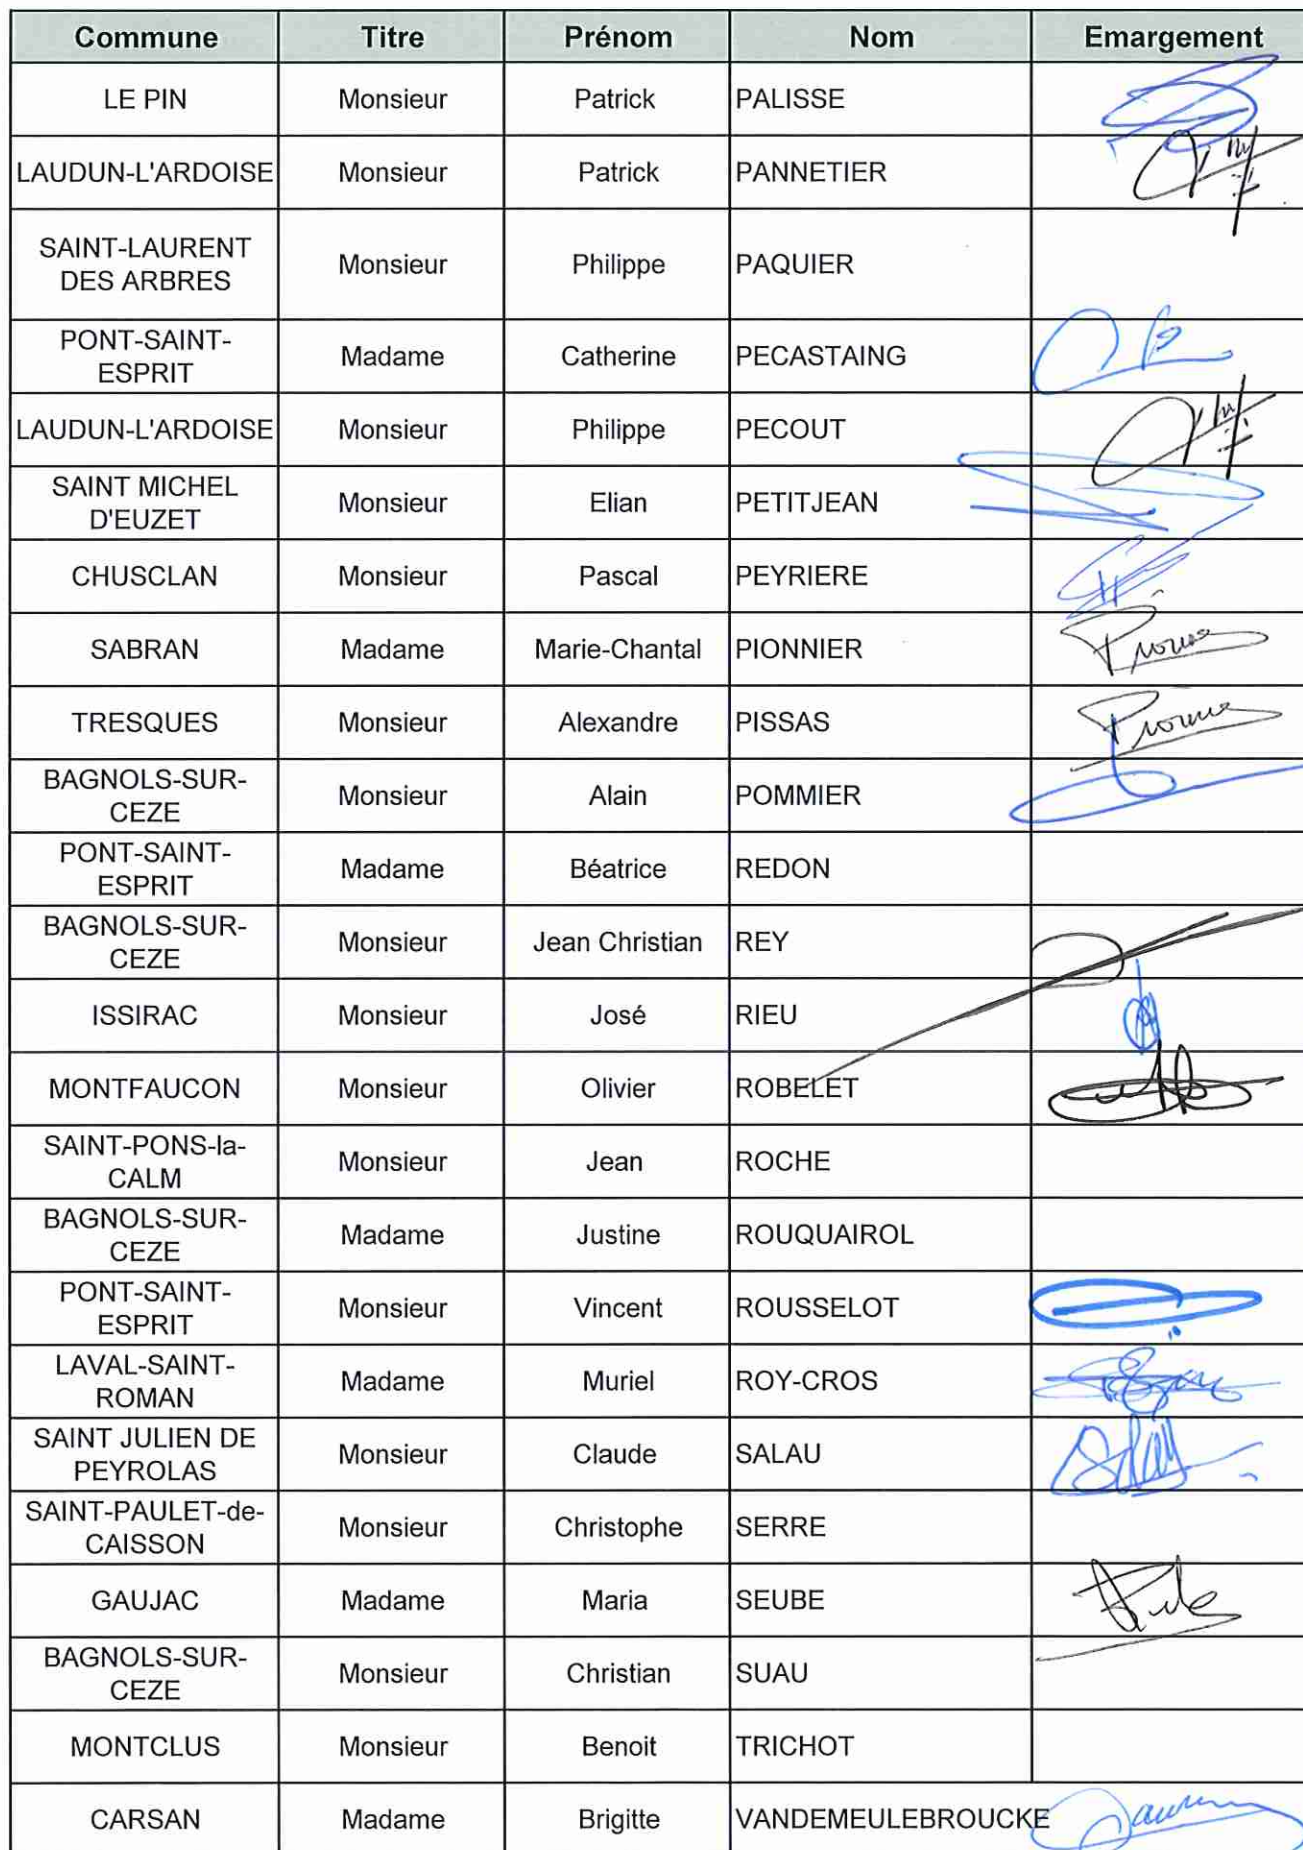 Commune Titre Prénom Nom Emargement
LE PIN Monsieur Patrick PALISSE
LAUDUN-L'ARDOISE Monsieur Patrick PANNETIER
SAINT-LAURENT
DES ARBRES Monsieur Philippe PAQUIER
PONT-SAINT-
ESPRIT Madame Catherine PECASTAING
LAUDUN-L'ARDOISE Monsieur Philippe PECOUT
SAINT MICHEL
D'EUZET Monsieur Elian PETITJEAN
CHUSCLAN Monsieur Pascal PEYRIERE
SABRAN Madame Marie-Chantal PIONNIER
TRESQUES Monsieur Alexandre PISSAS
BAGNOLS-SUR-
CEZE Monsieur Alain POMMIER
PONT-SAINT-
ESPRIT Madame Béatrice REDON
BAGNOLS-SUR-
CEZE Monsieur Jean Christian REY
ISSIRAC Monsieur José RIEU
MONTFAUCON Monsieur Olivier ROBELET
SAINT-PONS-la-
CALM Monsieur Jean ROCHE
BAGNOLS-SUR-
CEZE Madame Justine ROUQUAIROL
PONT-SAINT-
ESPRIT Monsieur Vincent ROUSSELOT
LAVAL-SAINT-
ROMAN Madame Muriel ROY-CROS
SAINT JULIEN DE
PEYROLAS Monsieur Claude SALAU
SAINT-PAULET-de-
CAISSON Monsieur Christophe SERRE
GAUJAC Madame Maria SEUBE
BAGNOLS-SUR-
CEZE Monsieur Christian SUAU
MONTCLUS Monsieur Benoit TRICHOT
CARSAN Madame Brigitte VANDEMEULEBROUCKE